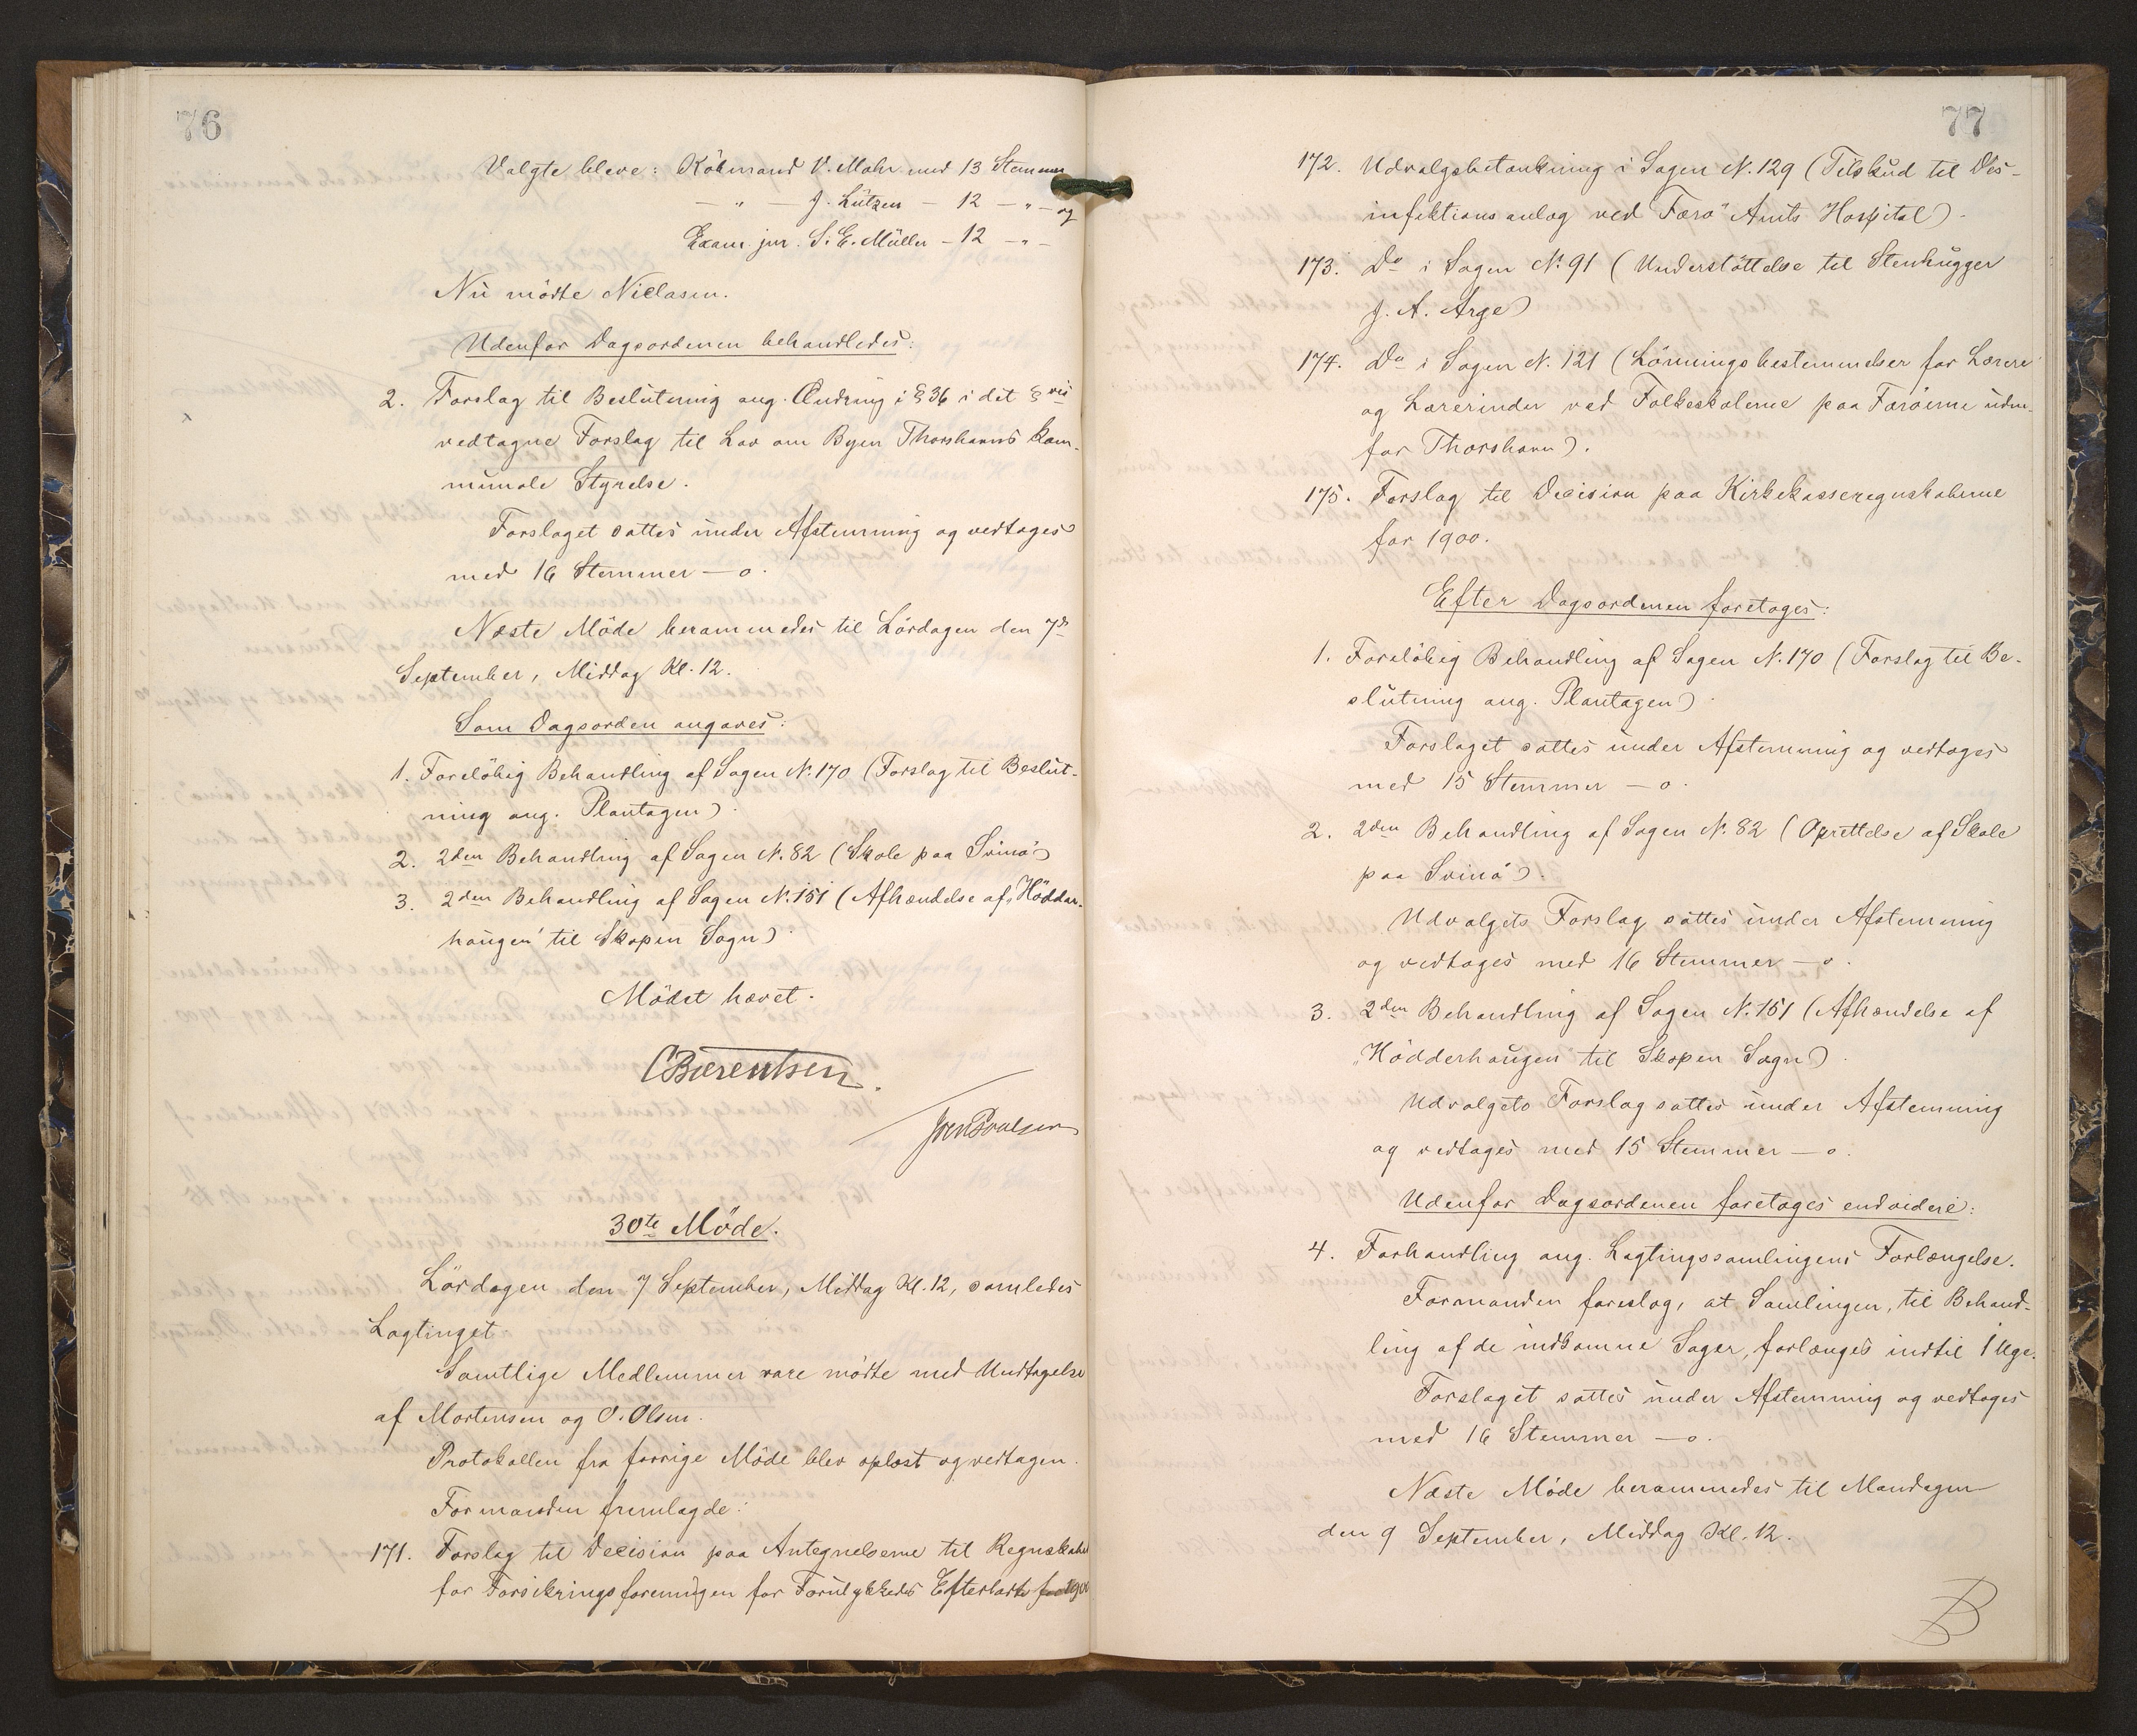 76
Valgte bleve: Köbmand V. Mohr med 13 Stemmer
— " — J. Lützen — 12 — " — og
Exam. jur. S. E. Müller — 12 — " —
Nu mödte Niclasen.
Udenfor Dagsordenen behandledes:
2. Forslag til Beslutning ang. Ændring i § 36 i det § vis
vedtagne Forslag til Lov om Byen Thorshavns kom-
munale Styrelse.
Forslaget sattes under Afstemning og vedtoges
med 16 Stemmer — 0.
Næste Möde berammedes til Lördagen den 7de
September, Middag Kl. 12.
Som Dagsorden angaves:
1. Forelöbig Behandling af Sagen N. 170 (Forslag til Beslut-
ning ang. Plantagen)
2. 2den Behandling af Sagen N. 82 (Skole paa Svinö)
3. 2den Behandling af Sagen N. 151 (Afhændelse af „Hödder-
haugen" til Skopen Sogn)
Mödet hævet.
C Bærentsen.
Joen Poulsen
30te Möde.
Lördagen den 7 September, Middag Kl. 12, samledes
Lagtinget.
Samtlige Medlemmer vare mödte med Undtagelse
af Mortensen og O. Olsen.
Protokollen fra forrige Möde blev oplæst og vedtagen.
Formanden fremlagde:
171. Forslag til Decision paa Antegnelserne til Regnskabet
for Forsikringsforeningen for Forulykkedes Efterladte for 1900
77
172. Udvalgsbetænkning i Sagen N. 129 (Tilskud til Des-
infektionsanlæg ved Færö Amts Hospital).
173. Do i Sagen N. 91 (Understöttelse til Stenhugger
J. A. Arge)
174. Do i Sagen N. 121 (Lönningsbestemmelser for Lærere
og Lærerinder ved Folkeskolerne paa Færöerne uden-
for Thorshavn).
175. Forslag til Decision paa Kirkekasseregnskaberne
for 1900.
Efter Dagsordenen foretoges:
1. Forelöbig Behandling af Sagen N. 170 (Forslag til Be-
slutning ang. Plantagen)
Forslaget sattes under Afstemning og vedtoges
med 15 Stemmer — 0.
2. 2den Behandling af Sagen N. 82 (Oprettelse af Skole
paa Svinö).
Udvalgets Forslag sattes under Afstemning
og vedtoges med 16 Stemmer — 0.
3. 2den Behandling af Sagen N. 151 (Afhændelse af
„Hödderhaugen" til Skopen Sogn)
Udvalgets Forslag sattes under Afstemning
og vedtoges med 15 Stemmer — 0.
Udenfor Dagsordenen foretoges endvidere:
4. Forhandling ang. Lagtingssamlingens Forlængelse.
Formanden foreslog, at Samlingen, til Behand-
ling af de indkomne Sager, forlænges indtil 1 Uge.
Forslaget sattes under Afstemning og vedtoges
med 16 Stemmer — 0.
Næste Möde berammedes til Mandagen
den 9 September, Middag Kl. 12.
B